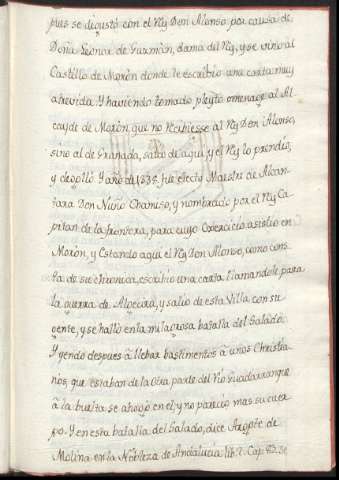 pues se disgustó con el Rey Don Alonso por causa de
Doña Leonor de Guzmán, dama del Rey, y se vino al
Castillo de Morón donde le escribio una carta muy
atrevida. Y haviendo tomado pleyto omenage al Al
cayde de Morón, que no recibiesse al Rey Don Alonso,
sino al de Granada, salió de aqui, y el Rey lo prendio,
y degolló. Y año de 1338. fue electo Maestre de Alcan
tara Don Nuño Chamiso, y nombrado por el Rey Ca
pitan de la frontera, para cuyo exercicio asistio en
Morón, y Estando aqui el Rey Don Alonso, como cons
ta de su chronica, escribio una carta llamandole para
la guerra de Algecira, y salio de esta Villa con su
gente, y se halló en la milagrosa batalla del Salado.
Y yendo despues â llebar bastimentos â unos Christia
nos, que estaban de la otra parte del Rio Guadarranque
â la buelta se ahogó en el, y no pareció mas su cuer
po. Y en esta batalla del Salado, dice Argote de
Molina en la Nobleza de Andalucia lib. 2. Cap. 83. se